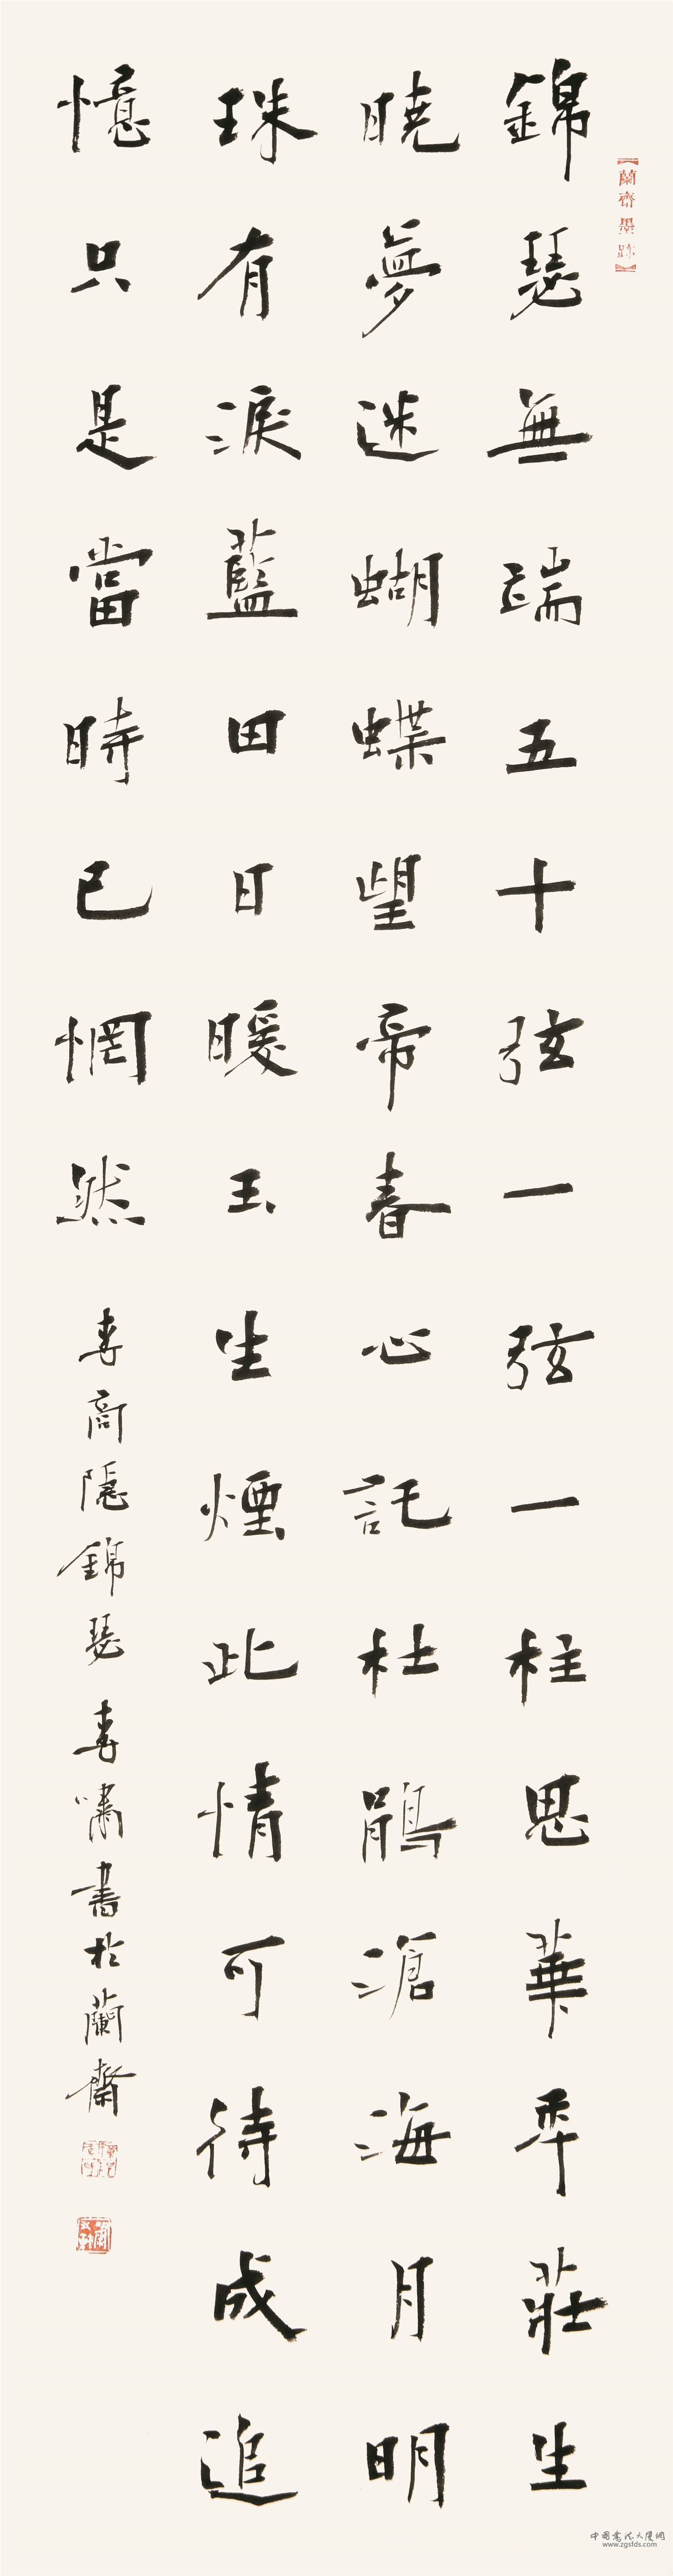 蘭齋墨跡
錦瑟無端五十弦一弦一柱思華年莊生
曉夢迷蝴蝶望帝春心託杜鵑滄海月明
珠有淚藍田日暖玉生煙此情可待成追
憶只是當時已惘然
李商隱錦瑟 李嘯書於蘭齋
中国书法大厦网
www.zgsfds.com